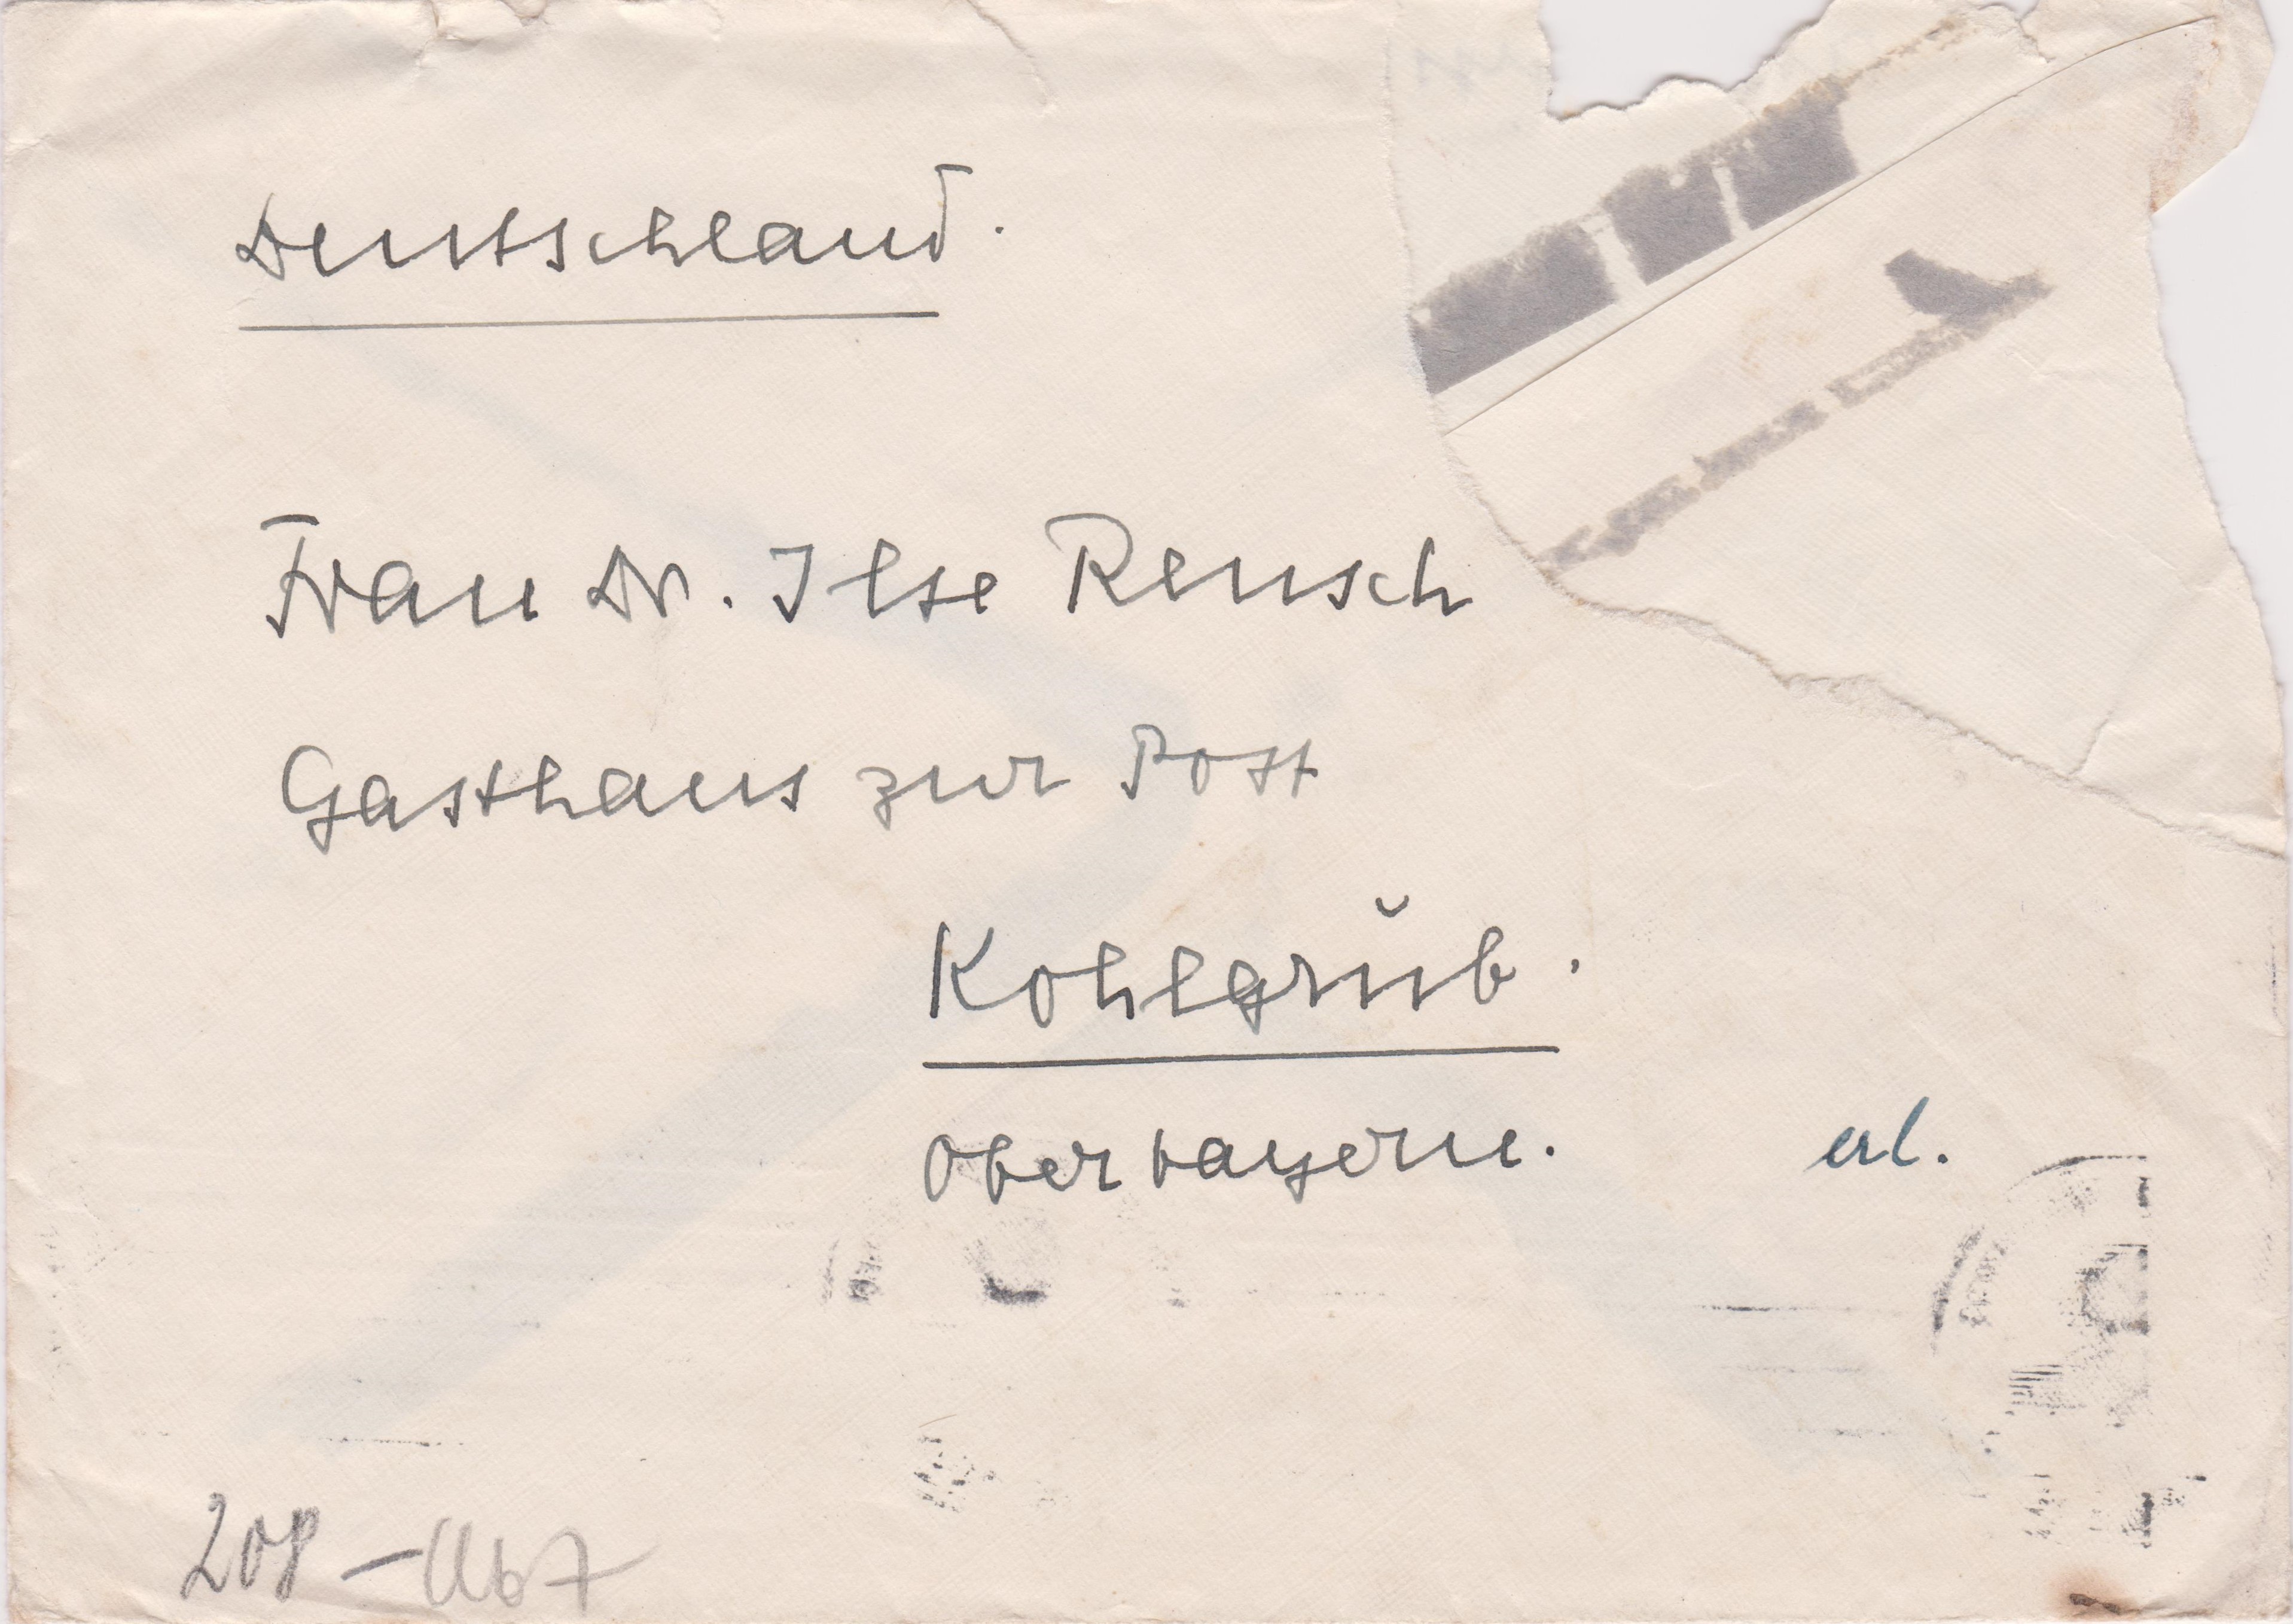 Deutschland.
Frau Dr. Ilse Reusch
Gasthaus zur Post
Kohlgrub.
Oberbayern.
erl.
208 –